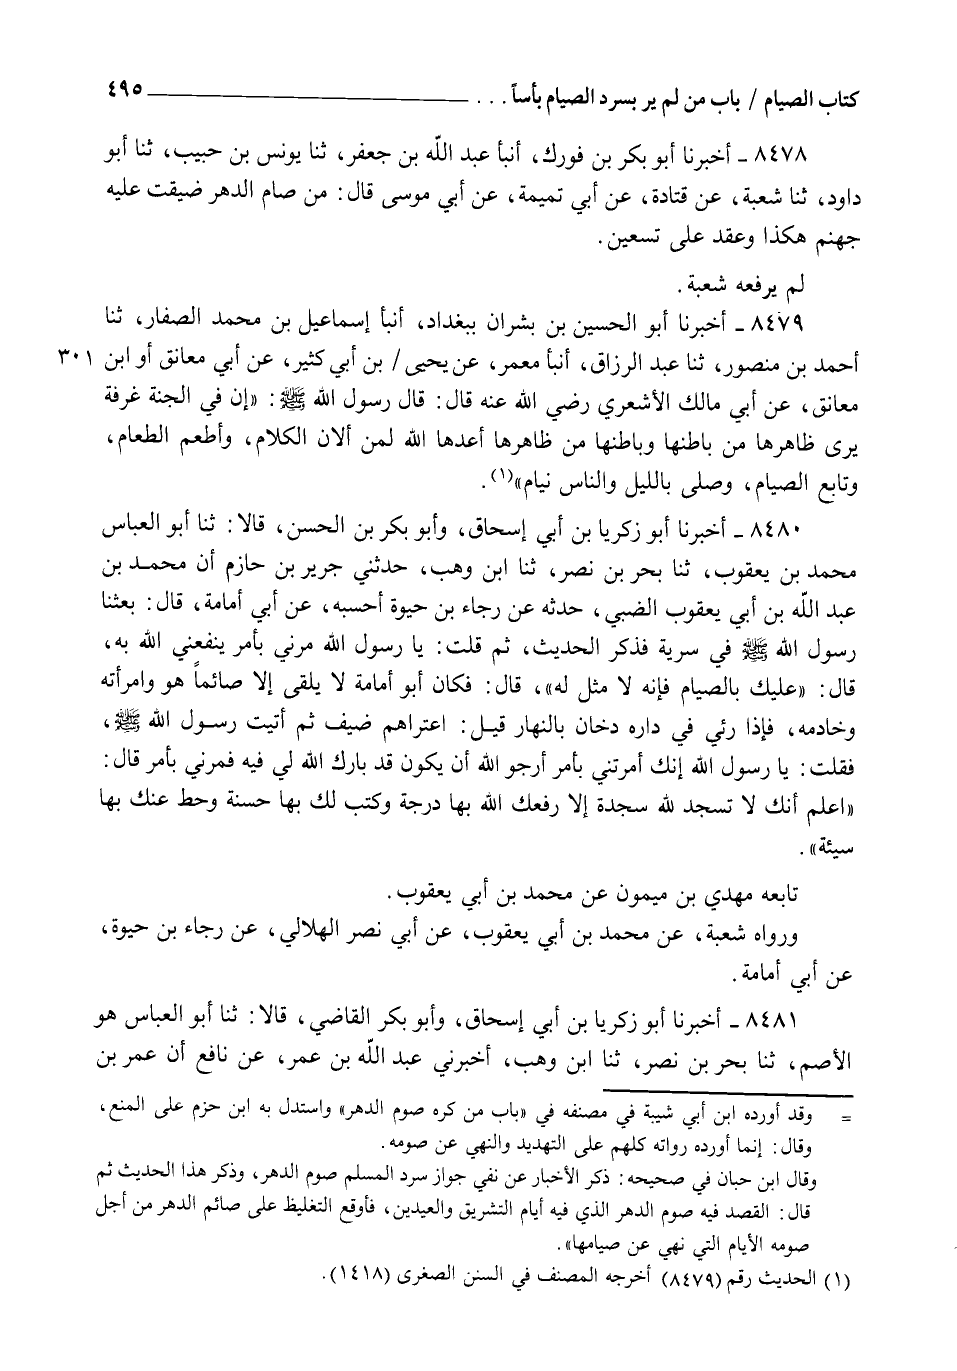 كتاب الصيام / باب من لم ير بسرد الصيام بأساً . . . ٤٩٥
٨٤٧٨ ـ أخبرنا أبو بكر بن فورك، أنبأ عبد اللّه بن جعفر، ثنا يونس بن حبيب، ثنا أبو
داود، ثنا شعبة، عن قتادة، عن أبي تميمة، عن أبي موسى قال: من صام الدهر ضيقت عليه
جهنم هكذا وعقد على تسعين.
لم يرفعه شعبة.
٨٤٧٩ ـ أخبرنا أبو الحسين بن بشران ببغداد، أنبأ إسماعيل بن محمد الصفار، ثنا
أحمد بن منصور، ثنا عبد الرزاق، أنبأ معمر، عن يحيى / بن أبي كثير، عن أبي معانق أو ابن ٣٠١
معانق، عن أبي مالك الأشعري رضي الله عنه قال: قال رسول الله ﷺ: «إن في الجنة غرفة
يرى ظاهرها من باطنها وباطنها من ظاهرها أعدها الله لمن ألان الكلام، وأطعم الطعام،
وتابع الصيام، وصلى بالليل والناس نيام»(١).
٨٤٨٠ ـ أخبرنا أبو زكريا بن أبي إسحاق، وأبو بكر بن الحسن، قالا: ثنا أبو العباس
محمد بن يعقوب، ثنا بحر بن نصر، ثنا ابن وهب، حدثني جرير بن حازم أن محمد بن
عبد اللّه بن أبي يعقوب الضبي، حدثه عن رجاء بن حيوة أحسبه، عن أبي أمامة، قال: بعثنا
رسول الله ﷺ في سرية فذكر الحديث، ثم قلت: يا رسول الله مرني بأمر ينفعني الله به،
قال: «عليك بالصيام فإنه لا مثل له»، قال: فكان أبو أمامة لا يلقى إلا صائماً هو وامرأته
وخادمه، فإذا رئي في داره دخان بالنهار قيل: اعتراهم ضيف ثم أتيت رسول الله ﷺ،
فقلت: يا رسول الله إنك أمرتني بأمر أرجو الله أن يكون قد بارك الله لي فيه فمرني بأمر قال:
«اعلم أنك لا تسجد لله سجدة إلا رفعك الله بها درجة وكتب لك بها حسنة وحط عنك بها
سيئة».
تابعه مهدي بن ميمون عن محمد بن أبي يعقوب.
ورواه شعبة، عن محمد بن أبي يعقوب، عن أبي نصر الهلالي، عن رجاء بن حيوة،
عن أبي أمامة.
٨٤٨١ ـ أخبرنا أبو زكريا بن أبي إسحاق، وأبو بكر القاضي، قالا: ثنا أبو العباس هو
الأصم، ثنا بحر بن نصر، ثنا ابن وهب، أخبرني عبد اللّه بن عمر، عن نافع أن عمر بن
= وقد أورده ابن أبي شيبة في مصنفه في «باب من كره صوم الدهر» واستدل به ابن حزم على المنع،
وقال: إنما أورده رواته كلهم على التهديد والنهي عن صومه.
وقال ابن حبان في صحيحه: ذكر الأخبار عن نفي جواز سرد المسلم صوم الدهر، وذكر هذا الحديث ثم
قال: القصد فيه صوم الدهر الذي فيه أيام التشريق والعيدين، فأوقع التغليظ على صائم الدهر من أجل
صومه الأيام التي نهي عن صيامها».
(١) الحديث رقم (٨٤٧٩) أخرجه المصنف في السنن الصغرى (١٤١٨).